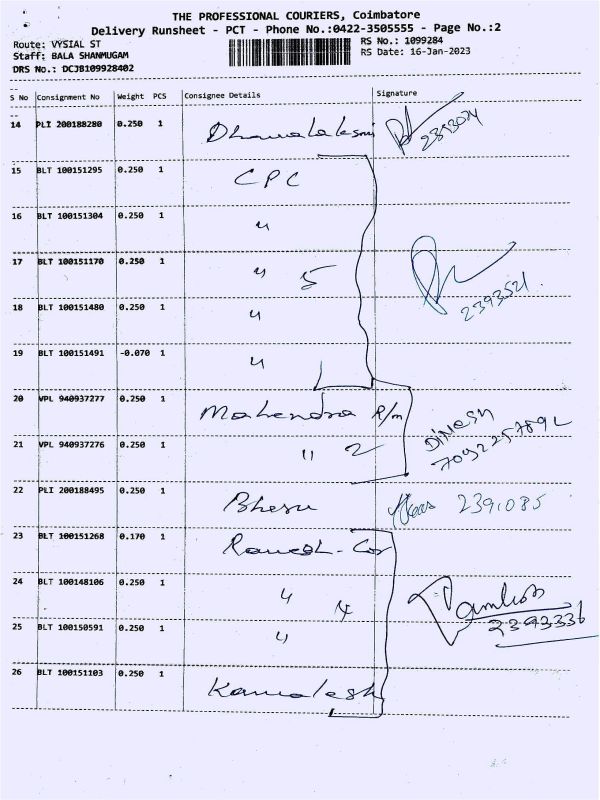 THE PROFESSIONAL COURIERS, Coimbatore
Delivery Runsheet - PCT - Phone No.:0422-3505555 - Page No.:2
Route: VYSIAL ST
RS No.: 1099284
Staff: BALA SHANMUGAM
RS Date: 16-Jan-2023
DRS No.: DCJB109928402
S No Consignment No Weight PCS Consignee Details Signature
14 PLI 200188280 0.250 1 Dhanalaksmi 2393074
15 BLT 100151295 0.250 1 CPC
16 BLT 100151304 0.250 1 "
17 BLT 100151170 0.250 1 " 5 2393521
18 BLT 100151480 0.250 1 "
19 BLT 100151491 -0.070 1 "
20 VPL 940937277 0.250 1 Mahendra R/m DINESH
21 VPL 940937276 0.250 1 " 2
22 PLI 200188495 0.250 1 Bhesu 2391085
23 BLT 100151268 0.170 1 Ramesh - Cor
24 BLT 100148106 0.250 1 " 4
25 BLT 100150591 0.250 1 " 2393336
26 BLT 100151103 0.250 1 Kamalesh